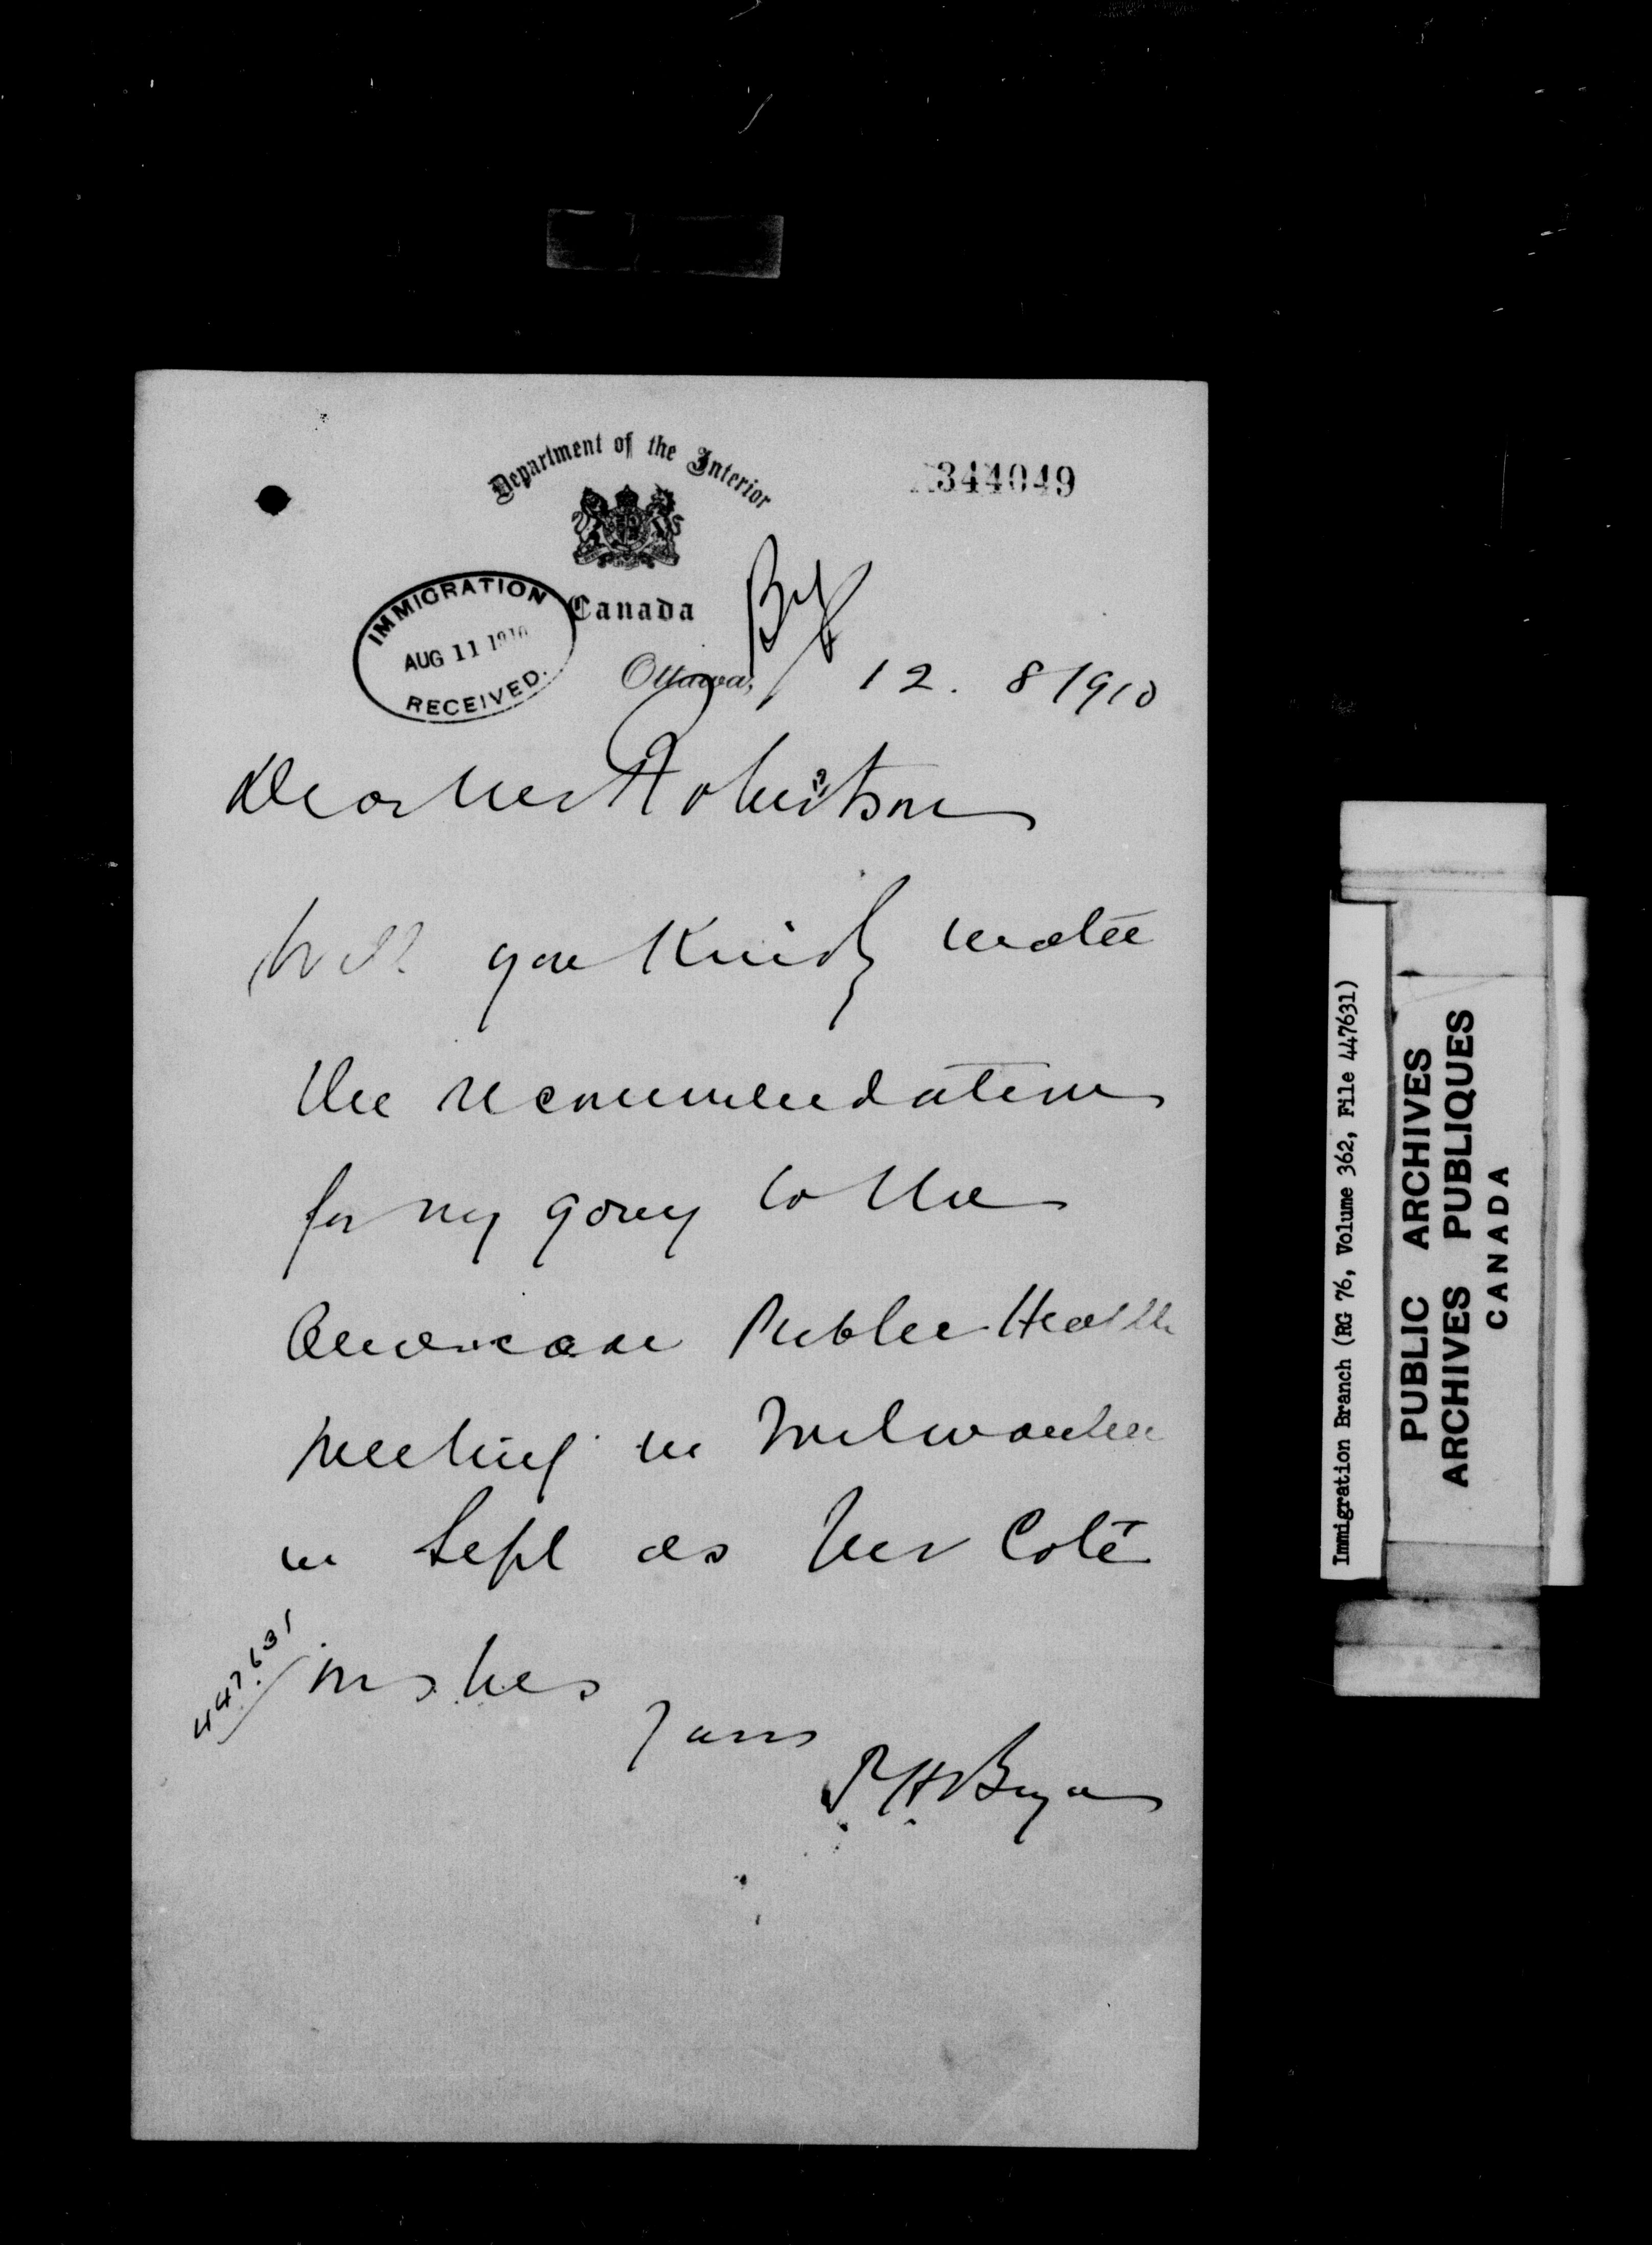 Department of the Interior
344049
Canada
IMMIGRATION
AUG 11 1910
RECEIVED.
Ottawa, 12. 8 1910
Dear Mr Robertson
Will you kindly
the recommendation
for my going to the
American Public Health
meeting in Milwaukee
in Sept as Mr Coté
wishes
Yours
P H Bryce
447631
Immigration Branch (RG 76, Volume 362, File 447631)
PUBLIC ARCHIVES
ARCHIVES PUBLIQUES
CANADA